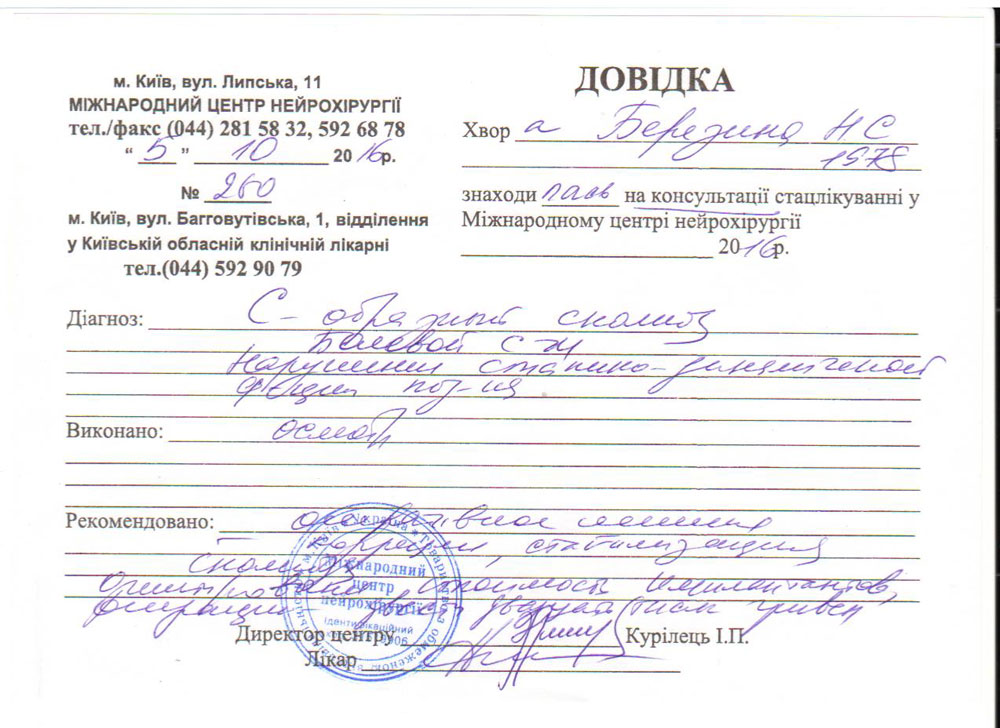 м. Київ, вул. Липська, 11
МІЖНАРОДНИЙ ЦЕНТР НЕЙРОХІРУРГІЇ
тел./факс (044) 281 58 32, 592 68 78
“ 5 ” 10 2016р.
№ 260
м. Київ, вул. Багговутівська, 1, відділення
у Київській обласній клінічній лікарні
тел.(044) 592 90 79
ДОВІДКА
Хвор а Березина Н С
1978
знаходилась на консультації стацлікуванні у
Міжнародному центрі нейрохірургії
2016р.
Діагноз: С - образный сколиоз
Болевой с-м
Нарушения статико-динамической
функции поз-ка
Виконано: осмотр
Рекомендовано: оперативное лечение
коррекция, стабилизация
Сколиоза
стоимость имплантантов,
операции двадцать тысяч гривен
Міжнародний
центр
нейрохірургії
ідентифікаційний
Директор центру Курілець І.П.
Лікар